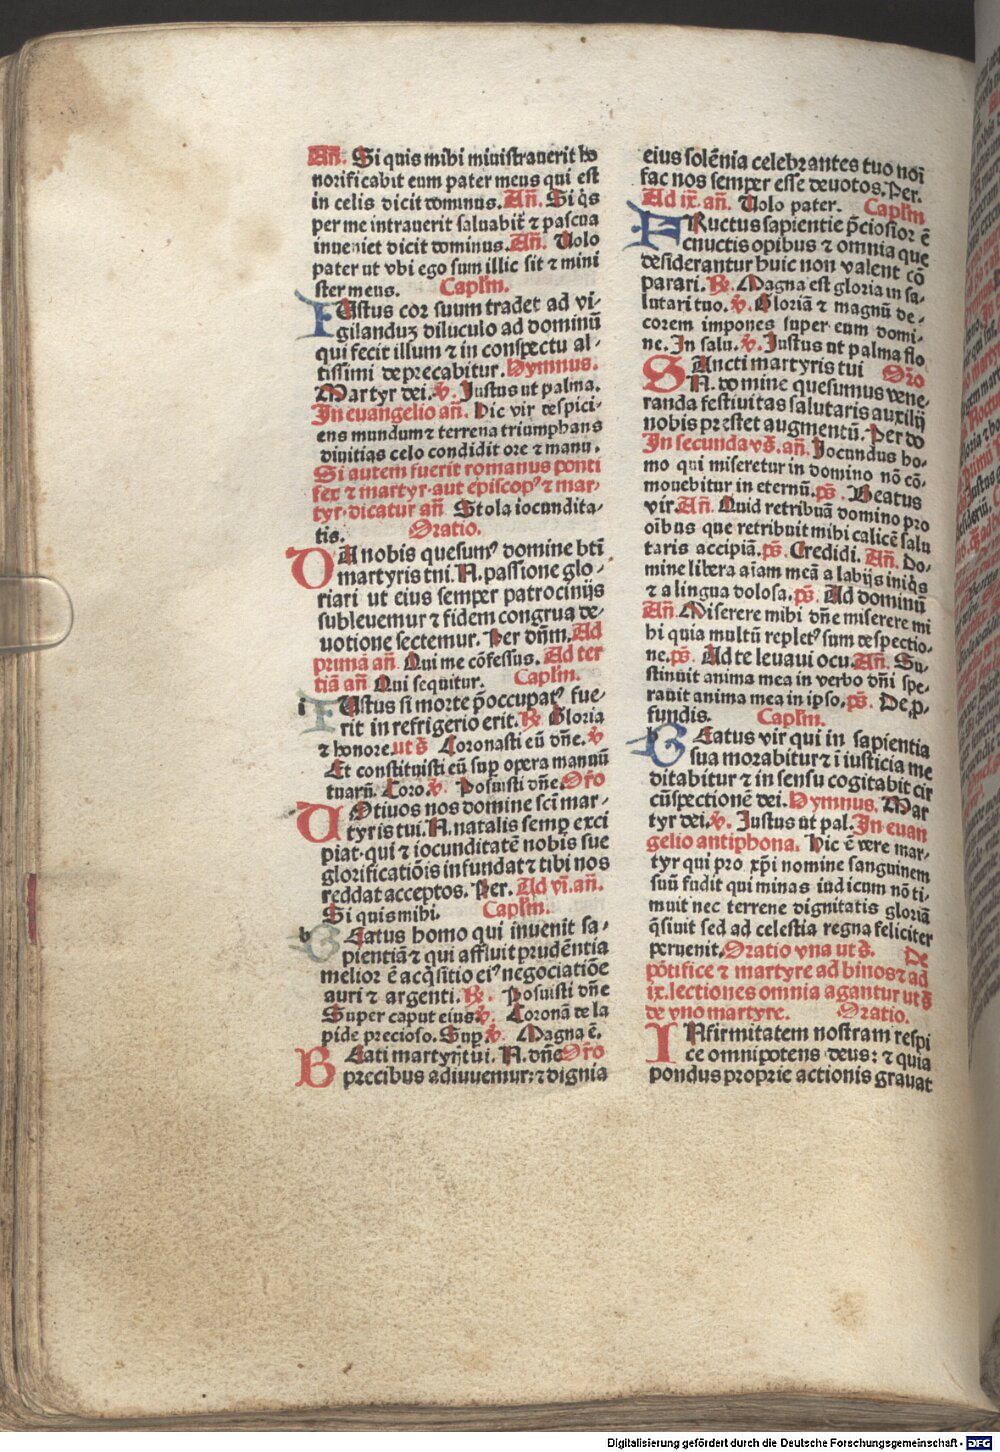 Añ. Si quis mihi ministrauerit ho
norificabit eum pater meus qui est
in celis dicit dominus. Añ. Si q̃s
per me intrauerit saluabit̃ ⁊ pascua
inueniet dicit dominus. Añ. Uolo
pater ut vbi ego sum illic sit ⁊ mini
ster meus. Caplm̃.
IUstus cor suum tradet ad vi-
gilanduȝ diluculo ad dominũ
qui fecit illum ⁊ in conspectu al-
tissimi deprecabitur. Hymnus.
Martyr dei. ℣. Justus ut palma.
In euangelio añ. Hic vir despici-
ens mundum ⁊ terrena triumphans
diuitias celo condidit ore ⁊ manu.
Si autem fuerit romanus ponti
fex ⁊ martyr·aut episcopꝰ ⁊ mar-
tyr·dicatur añ Stola iocundita-
tis. Oratio.
DA nobis quesumꝰ domine bt̃i
martyris tui. N. passione glo-
riari ut eius semper patrocinijs
subleuemur ⁊ fidem congrua de-
uotione sectemur. Per dñm. Ad
primã añ Qui me cõfessus. Ad ter
tiã añ Qui sequitur. Caplm̃.
i IUstus si morte p̃occupatꝰ fue-
rit in refrigerio erit. ℟ Gloria
⁊ honore. ut s̃ Coronasti eũ dñe. ℣
Et constituisti eũ suꝑ opera manuũ
tuarũ. Coro. ℣. Posuisti dñe. Or̃o
UOtiuos nos domine sc̃i mar-
tyris tui. N. natalis semꝑ exci
piat·qui ⁊ iocunditatẽ nobis sue
glorificatiõis infundat ⁊ tibi nos
reddat acceptos. Per. Ad vi. añ.
Si quis mihi. Caplm̃.
b BEatus homo qui inuenit sa-
pientiã ⁊ qui affluit prudẽntia
melior ẽ acq̃sitio eiꝰ negociatiõe
auri ⁊ argenti. ℟. Posuisti dñe
Super caput eius ℣. Coronã de la
pide precioso. Suꝑ. ℣. Magna ẽ.
BEati martyr̃ tui. N. dñe Or̃o
precibus adiuuemur: ⁊ dignia
eius solẽnia celebrantes tuo noĩ
fac nos semper esse deuotos. Per.
Ad ix. añ. Uolo pater. Caplm̃
FRuctus sapientie p̃ciosior ẽ
cnuctis opibus ⁊ omnia que
desiderantur huic non valent cõ
parari. ℟. Magna est gloria in sa-
lutari tuo. ℣. Gloriã ⁊ magnũ de-
corem impones super eum domi-
ne. In salu. ℣. Justus ut palma flo
SAncti martyris tui Or̃o
N. domine quesumus vene-
randa festiuitas salutaris auxilij
nobis prestet augmentũ. Per do
In secunda vs̃. añ. Jocundus ho-
mo qui miseretur in domino nõ cõ-
mouebitur in eternũ. ps̃. Beatus
vir. Añ. Quid retribuã domino pro
oĩbus que retribuit mihi calicẽ salu
taris accipiã. ps̃. Credidi. Añ. Do-
mine libera aĩam meã a labijs iniq̃s
⁊ a lingua dolosa. ps̃. Ad dominũ
Añ Miserere mihi dñe miserere mi
hi quia multũ repletꝰ sum despectio-
ne. ps̃. Ad te leuaui ocu. Añ. Su-
stinuit anima mea in verbo dñi spe-
rauit anima mea in ipso. ps̃. De ꝓ-
fundis. Caplm̃.
b BEatus vir qui in sapientia
sua morabitur ⁊ ĩ iusticia me
ditabitur ⁊ in sensu cogitabit cir
cũspectionẽ dei. Hymnus. Mar
tyr dei. ℣. Justus ut pal. In euan
gelio antiphona. Hic ẽ vere mar-
tyr qui pro xp̃i nomine sanguinem
suũ fudit qui minas iudicum nõ ti-
muit nec terrene dignitatis gloriã
q̃siuit sed ad celestia regna feliciter
peruenit. Oratio vna ut s̃. De
põtifice ⁊ martyre ad binos ⁊ ad
ix. lectiones omnia agantur ut s̃
de vno martyre. Oratio.
INfirmitatem nostram respi
ce omnipotens deus: ⁊ quia
pondus proprie actionis grauat
Digitalisierung gefördert durch die Deutsche Forschungsgemeinschaft - DFG